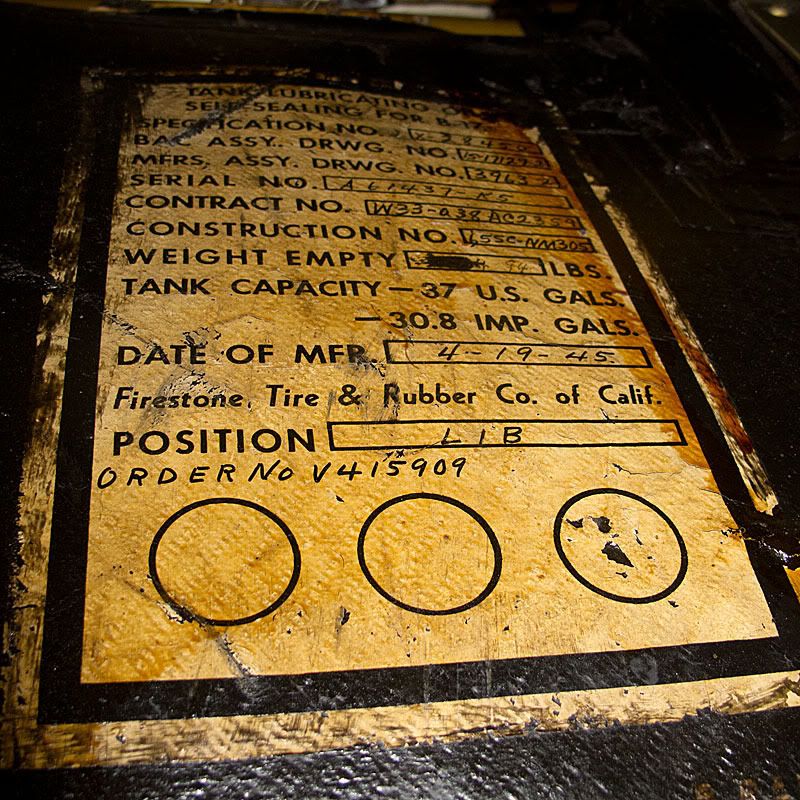 TANK LUBRICATING
SELF SEALING FOR B-17
SPECIFICATION NO.
BAC ASSY. DRWG. NO.
MFRS. ASSY. DRWG. NO. 3963-2
SERIAL NO. A61437-RS
CONTRACT NO. W33-038AC2359
CONSTRUCTION NO. 655C-NM305
WEIGHT EMPTY 94 LBS.
TANK CAPACITY — 37 U.S. GALS.
— 30.8 IMP. GALS.
DATE OF MFR. 4-19-45
Firestone, Tire & Rubber Co. of Calif.
POSITION LIB
ORDER No V415909